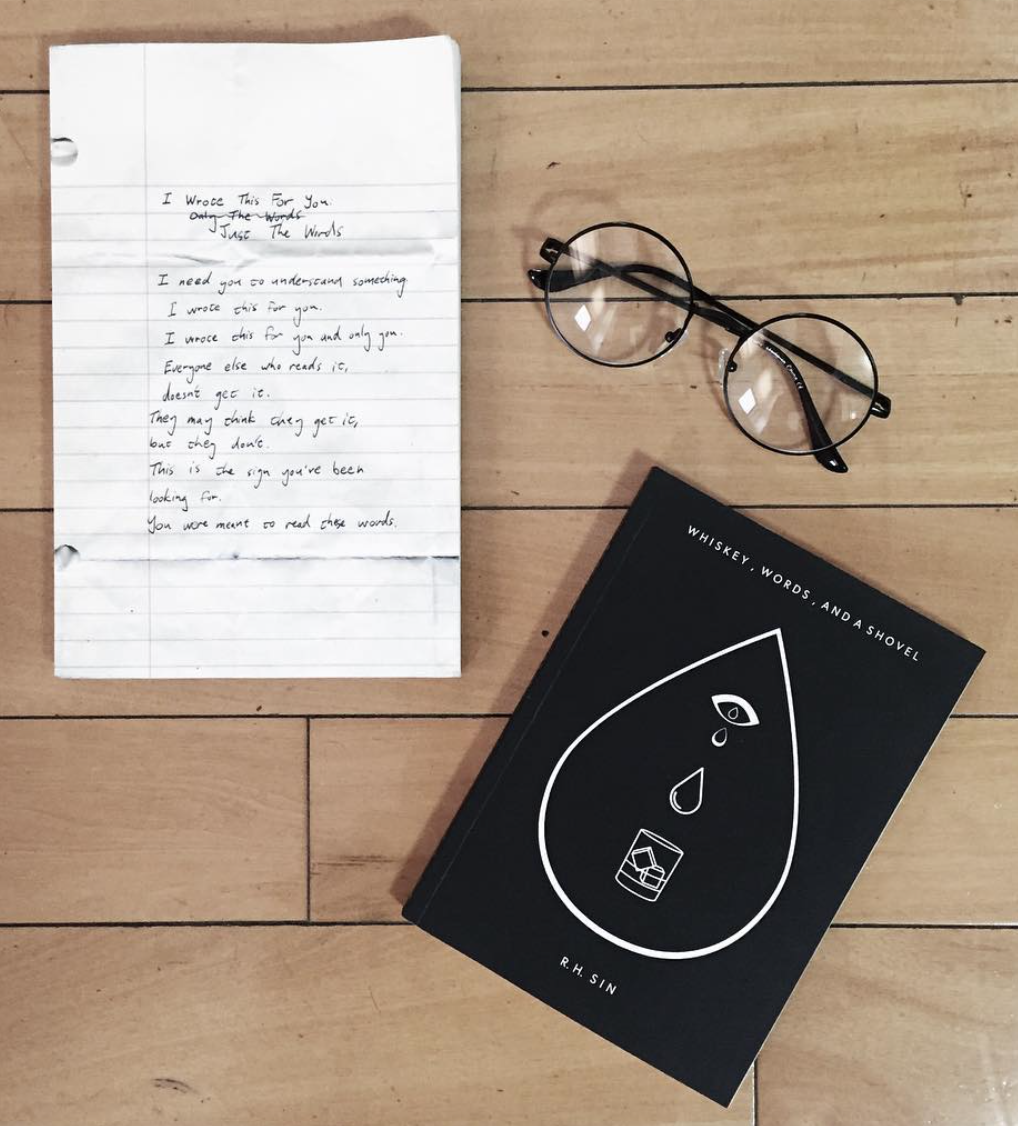 I Wrote This For You.
Only The Words
Just The Words
I need you to understand something.
I wrote this for you.
I wrote this for you and only you.
Everyone else who reads it,
doesn't get it.
They may think they get it,
but they don't.
This is the sign you've been
looking for.
You were meant to read these words.
WHISKEY, WORDS, AND A SHOVEL
R.H. SIN